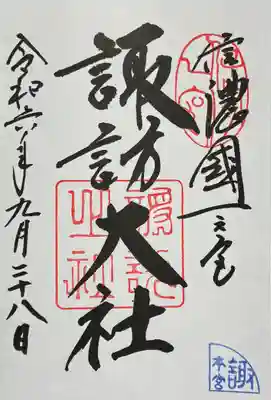 信濃國一之宮
諏訪大社
諏訪
之社
令和六年九月二十八日
諏
本宮